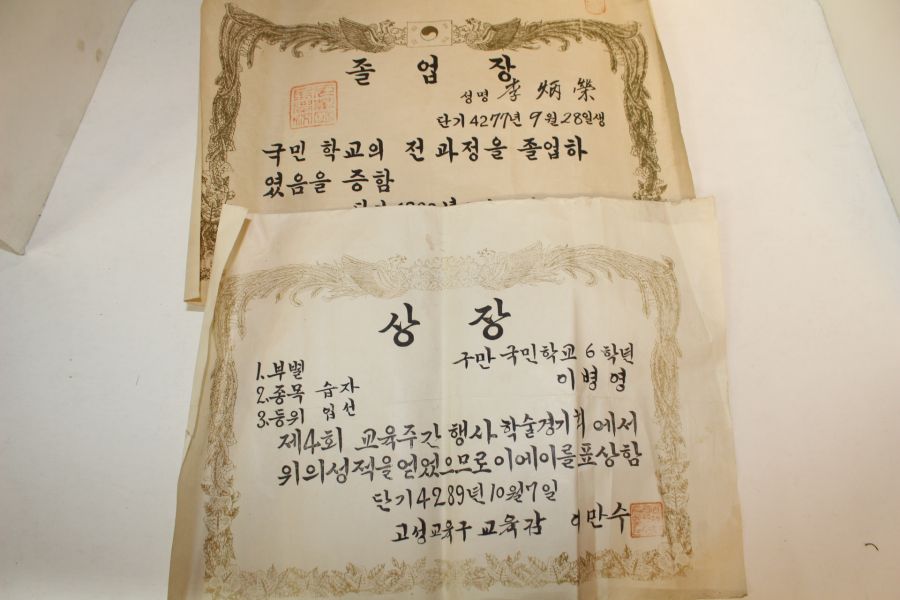 졸업장
성명 李炳榮
단기4277년 9월28일생
국민 학교의 전 과정을 졸업하
였음을 증함
상장
구만 국민학교 6학년
이병영
1.부별
2.종목 습자
3.등위 입선
제4회 교육주간 행사 학술경기회에서
위의성적을얻었으므로이에이를표상함
단기4289년10월7일
고성교육구 교육감 이만수